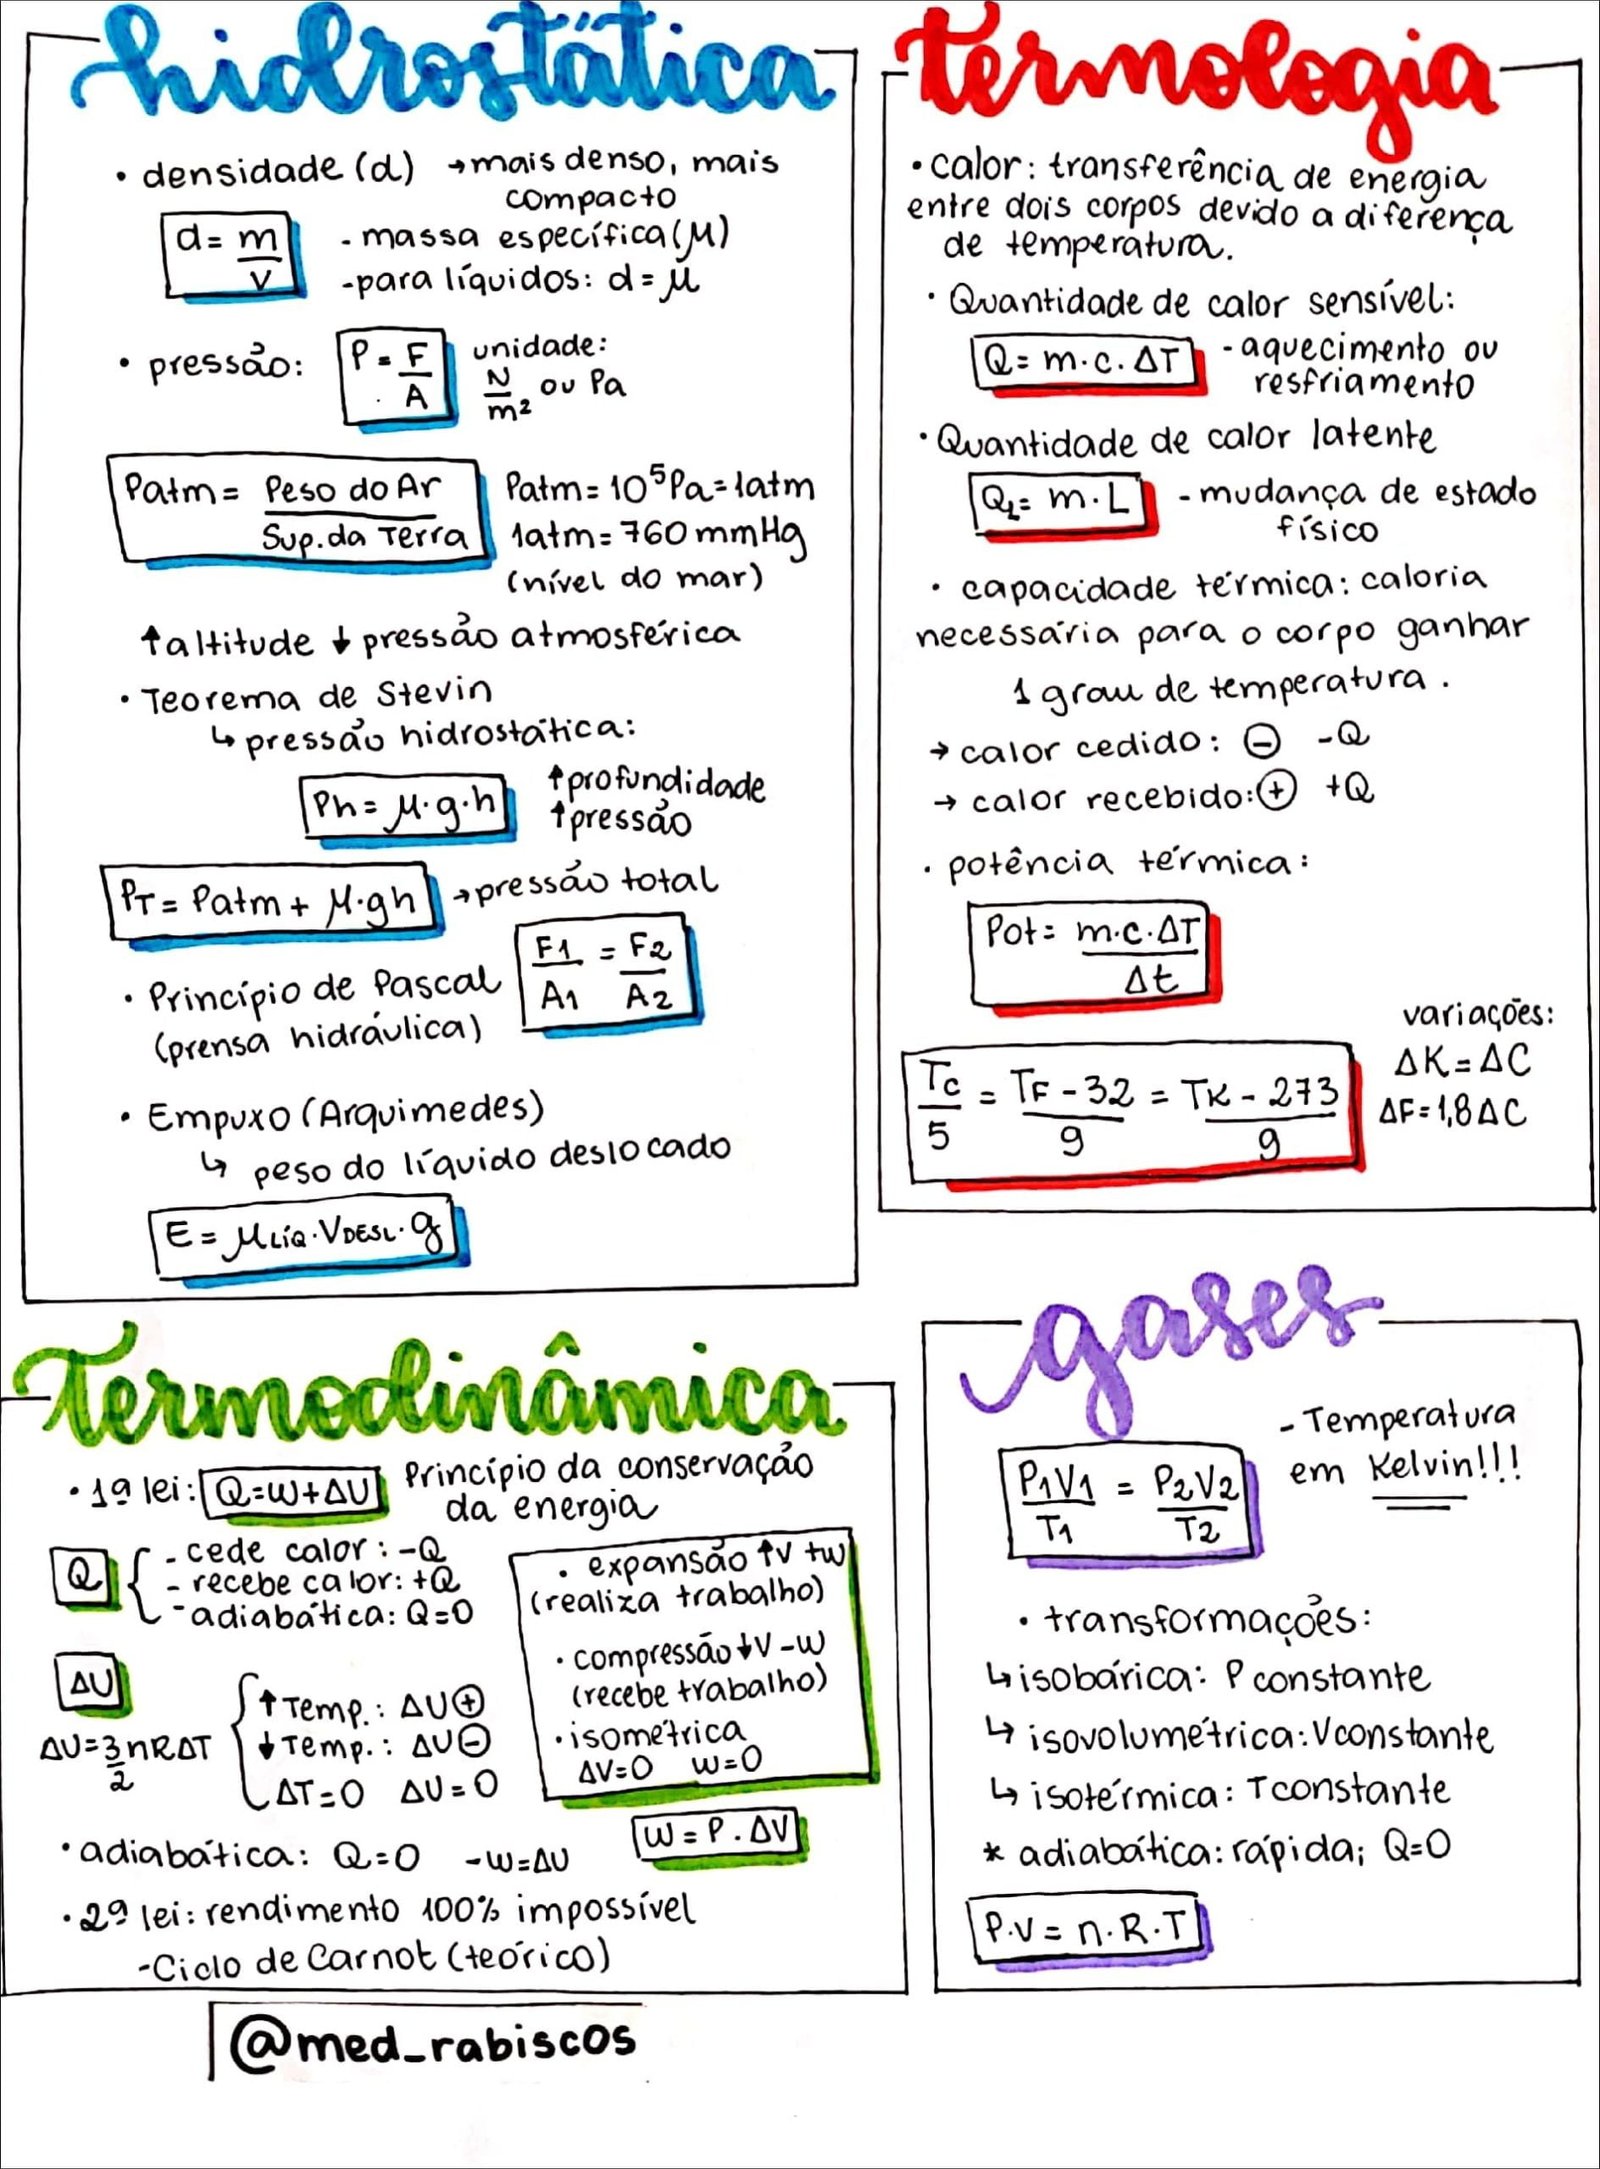 hidrostática
• densidade (d) → mais denso, mais
compacto
d = m
V
- massa específica (μ)
- para líquidos: d = μ
• pressão:
P = F
A
unidade:
N
m² ou Pa
Patm = Peso do Ar
Sup. da Terra
Patm = 10⁵ Pa = 1atm
1atm = 760 mmHg
(nível do mar)
↑ altitude ↓ pressão atmosférica
• Teorema de Stevin
↳ pressão hidrostática:
Ph = μ·g·h
↑ profundidade
↑ pressão
PT = Patm + μ·gh → pressão total
• Princípio de Pascal
(prensa hidráulica)
F1 = F2
A1 A2
• Empuxo (Arquimedes)
↳ peso do líquido deslocado
E = μLíQ·VDESL·g
termologia
• calor: transferência de energia
entre dois corpos devido a diferença
de temperatura.
• Quantidade de calor sensível:
Q = m·c·ΔT
- aquecimento ou
resfriamento
• Quantidade de calor latente
QL = m·L
- mudança de estado
físico
• capacidade térmica: caloria
necessária para o corpo ganhar
1 grau de temperatura.
→ calor cedido: ⊖ -Q
→ calor recebido: ⊕ +Q
• potência térmica:
Pot = m·c·ΔT
Δt
Tc = TF - 32 = TK - 273
5 9 9
variações:
ΔK = ΔC
ΔF = 1,8ΔC
Termodinâmica
• 1ª lei: Q = W + ΔU Princípio da conservação
da energia
Q
- cede calor: -Q
- recebe calor: +Q
- adiabática: Q=0
ΔU
ΔU = 3 nRΔT
2
↑ Temp.: ΔU ⊕
↓ Temp.: ΔU ⊖
ΔT = 0 ΔU = 0
• expansão ↑V +W
(realiza trabalho)
• compressão ↓V -W
(recebe trabalho)
• isométrica
ΔV=0 W=0
W = P. ΔV
• adiabática: Q=0 -W=ΔU
• 2ª lei: rendimento 100% impossível
- Ciclo de Carnot (teórico)
gases
P1V1 = P2V2
T1 T2
- Temperatura
em Kelvin!!!
• transformações:
↳ isobárica: P constante
↳ isovolumétrica: V constante
↳ isotérmica: T constante
* adiabática: rápida; Q=0
P·V = n·R·T
@med_rabiscos